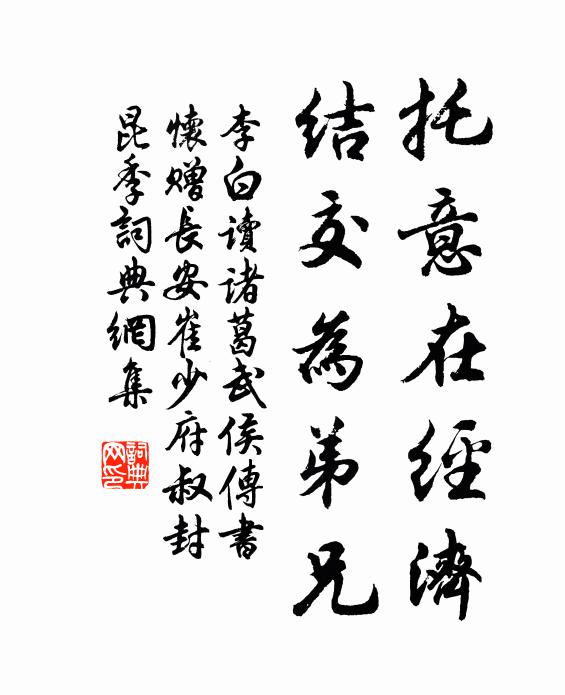 托意在經濟
結交為弟兄
李白讀諸葛武侯傳書
懷贈長安崔少府叔封
昆季詞典網集
詞典
网印